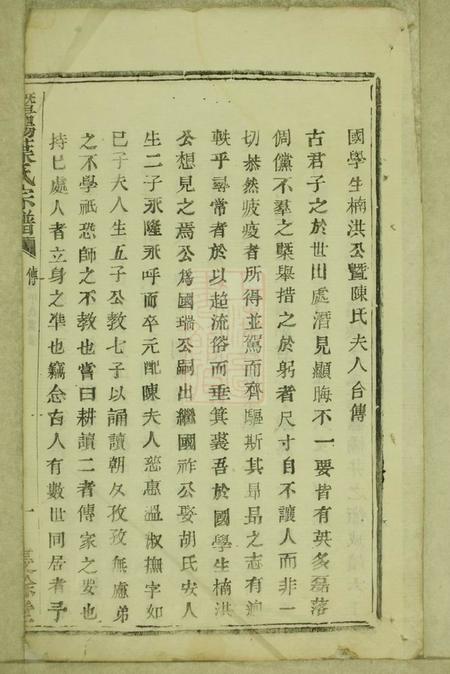 國學生楠洪公暨陳氏夫人合傳
古君子之於世出處潛見顯晦不一要皆有英多磊落
倜儻不羣之槩舉措之於躬者尺寸自不讓人而非一
切恭然疲疫者所得並駕而齊驅斯其昻昻之志有迥
軼乎尋常者於以超流俗而垂箕裘吾於國學生楠洪
公想見之焉公爲國瑞公嗣出繼國祚公娶胡氏安人
生二子永隆永呼而卒元配陳夫人慈惠溫淑撫字如
己子夫人生五子公教七子以誦讀朝夕孜孜無慮弟
之不學祇恐師之不教也嘗曰耕讀二者傳家之要也
持己處人者立身之凖也竊念古人有數世同居者予
暨陽葉氏宗譜
傳
一
餘